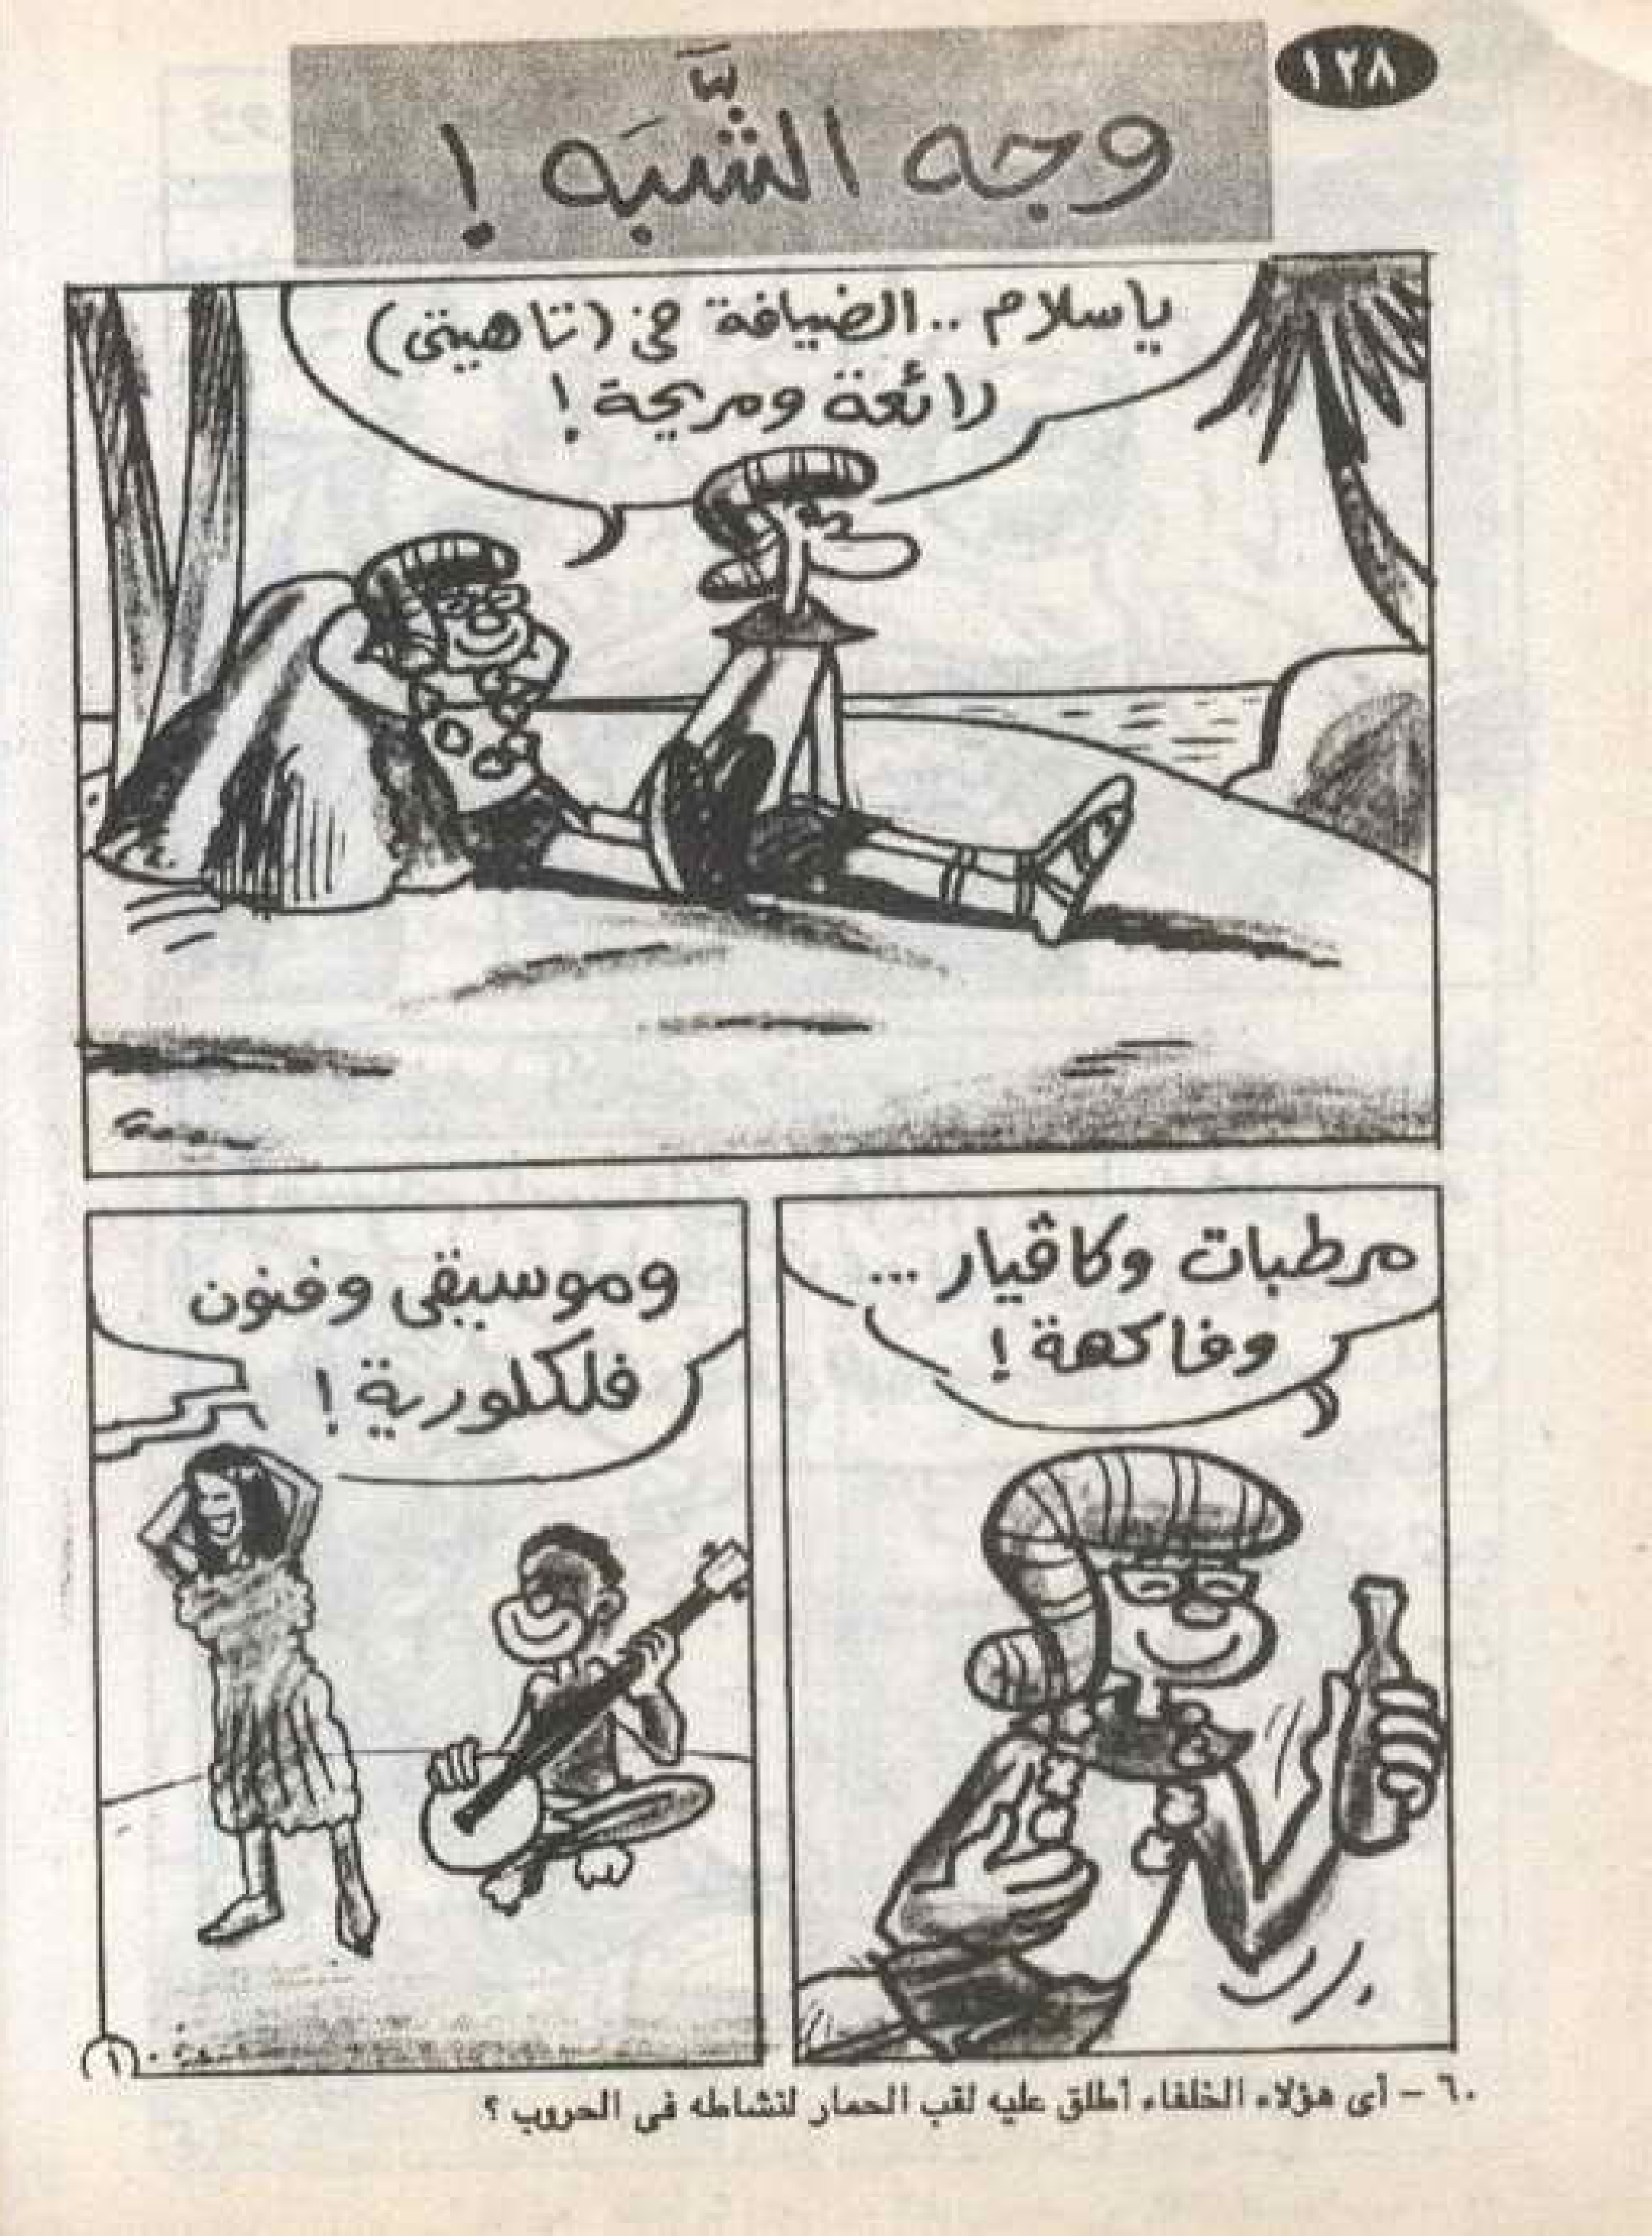 ١٢٨
وجه الشَّبَه !
ياسلام .. الضيافة فى (تاهيتى)
رائعة ومريحة !
مرطبات وكاڤيار ...
وفاكهة !
وموسيقى وفنون
فلكلورية !
١
٦٠ - أى هؤلاء الخلفاء أطلق عليه لقب الحمار لنشاطه فى الحروب ؟